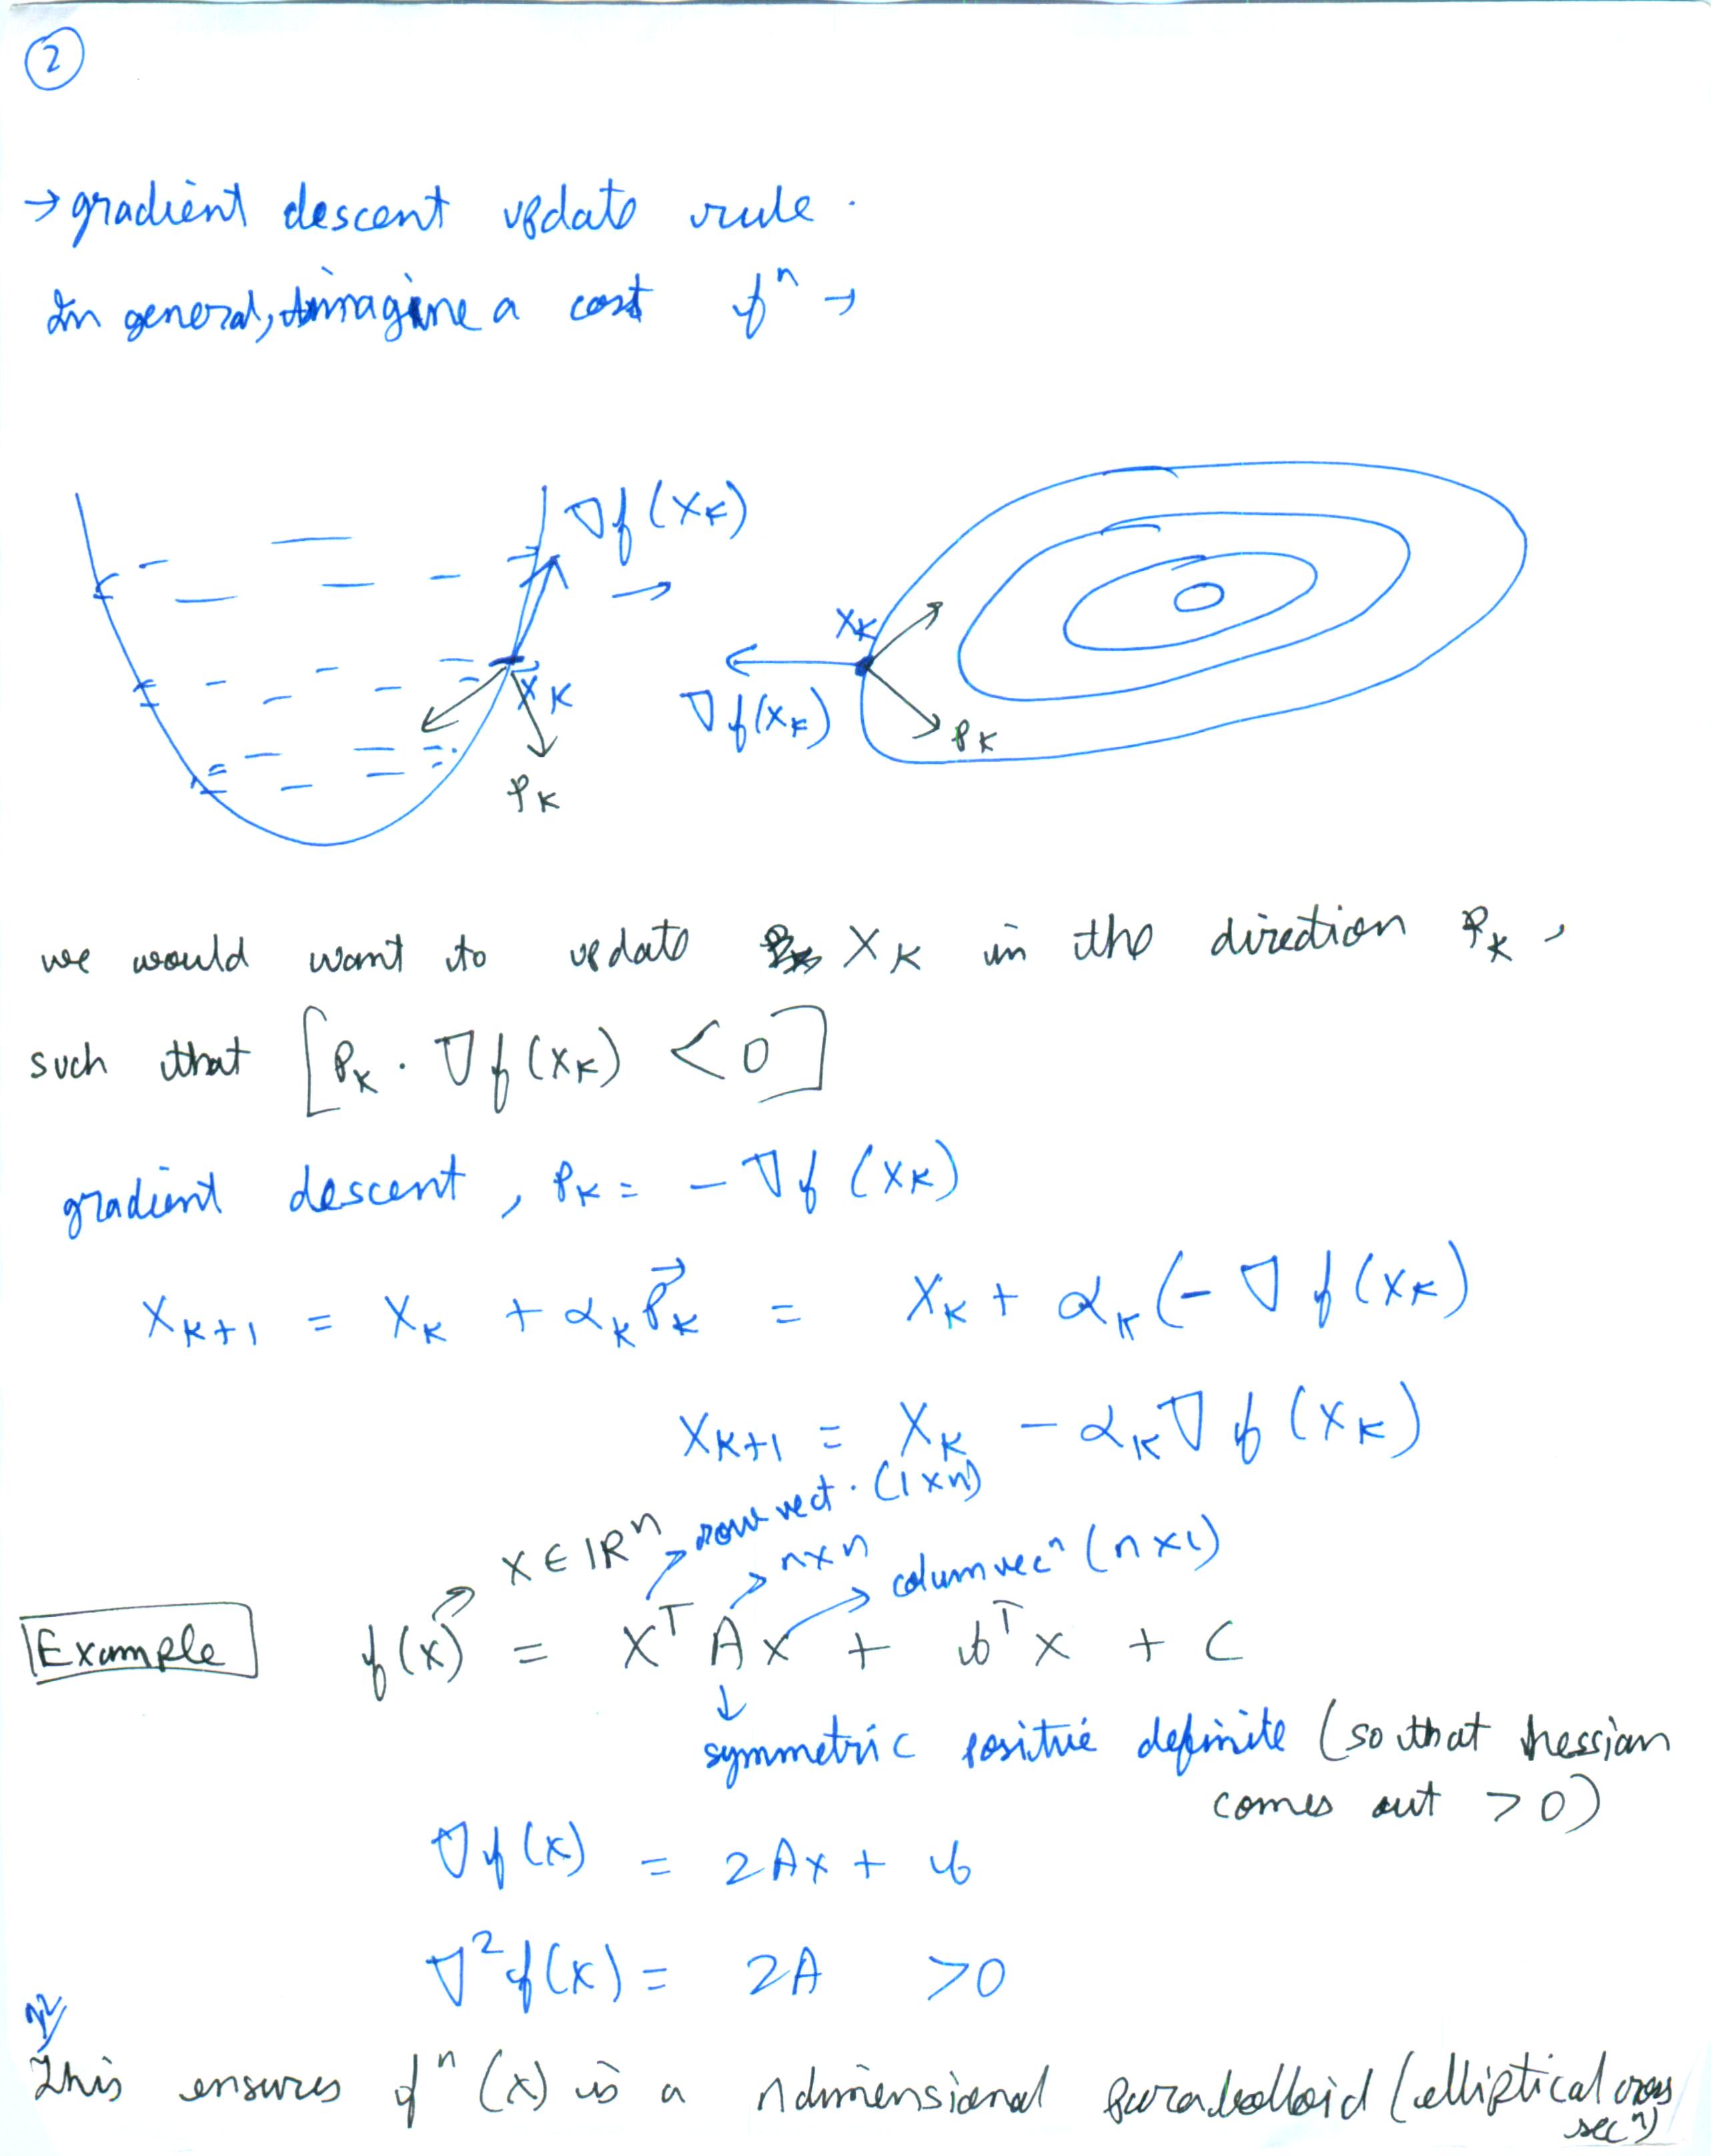 2
→ gradient descent update rule.
In general, imagine a cost fⁿ →
∇f(xₖ)
xₖ
pₖ
xₖ
∇f(xₖ)
pₖ
we would want to update xₖ in the direction pₖ,
such that [pₖ · ∇f(xₖ) < 0]
gradient descent, pₖ = - ∇f(xₖ)
xₖ₊₁ = xₖ + αₖp⃗ₖ = xₖ + αₖ(-∇f(xₖ)
xₖ₊₁ = xₖ - αₖ∇f(xₖ)
x ∈ ℝⁿ row vect. (1×n)
n×n column vecⁿ (n×1)
Example f(x) = xᵀAx + bᵀx + c
↓
symmetric positive definite (so that hessian
comes out > 0)
∇f(x) = 2Ax + b
∇²f(x) = 2A > 0
This ensures fⁿ(x) is a n dimensional parabolloid (elliptical cross
secⁿ)